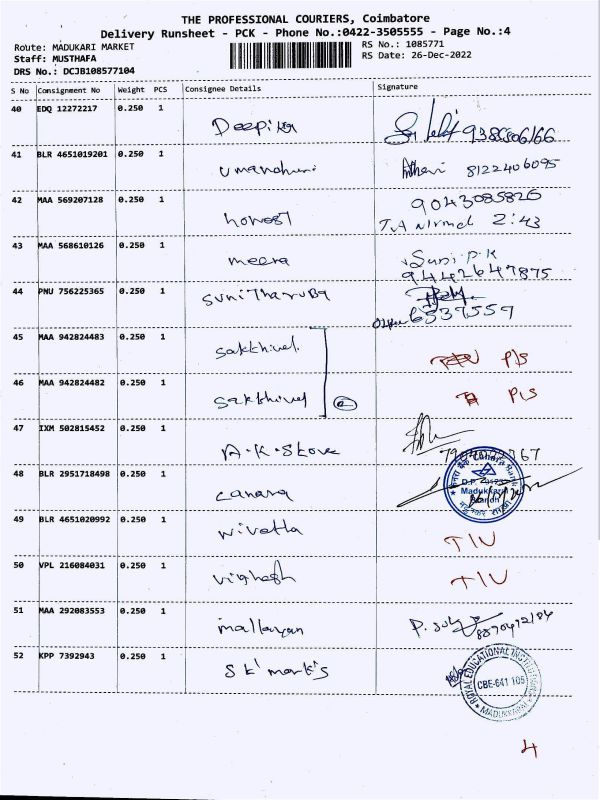 THE PROFESSIONAL COURIERS, Coimbatore
Delivery Runsheet - PCK - Phone No.:0422-3505555 - Page No.:4
Route: MADUKARI MARKET
RS No.: 1085771
Staff: MUSTHAFA
RS Date: 26-Dec-2022
DRS No.: DCJB108577104
S No Consignment No Weight PCS Consignee Details Signature
40 EDQ 12272217 0.250 1 Deepika
41 BLR 4651019201 0.250 1 8122406095
42 MAA 569207128 0.250 1 honest 9043085826
2:43
43 MAA 568610126 0.250 1 meera Suni.P.K
9442647875
44 PNU 756225365 0.250 1
6537557
45 MAA 942824483 0.250 1 sakthivel P/S
46 MAA 942824482 0.250 1 sakthivel P/S
2
47 IXM 502815452 0.250 1 A.K.Store
48 BLR 2951718498 0.250 1 canara
Canara Bank
Madukkarai
Branch
49 BLR 4651020992 0.250 1 T/U
50 VPL 216084031 0.250 1 vighesh T/U
51 MAA 292083553 0.250 1 mallayan
52 KPP 7392943 0.250 1 S k' mark's
ROYAL EDUCATIONAL
CBE-641 105
MADUKKARAI
4